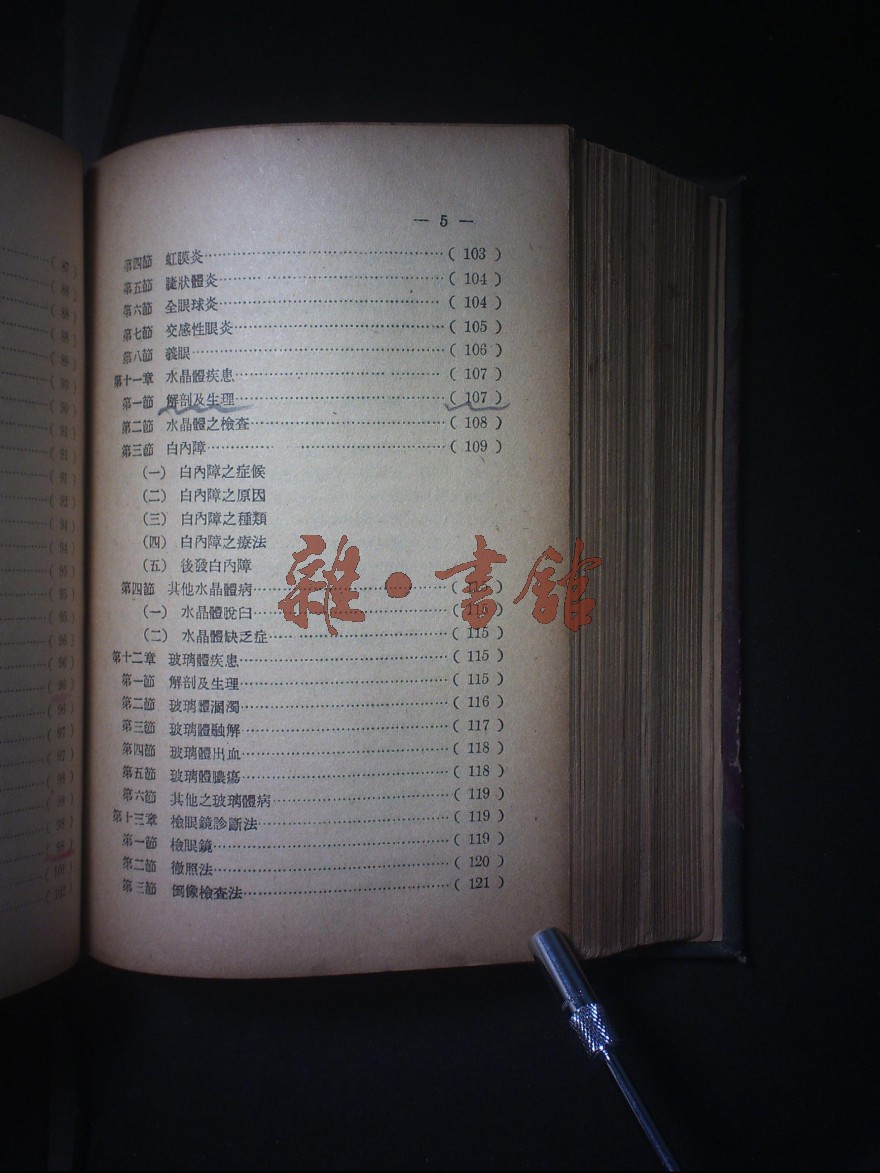 — 5 —
第四節 虹膜炎………( 103 )
第五節 睫狀體炎………( 104 )
第六節 全眼球炎………( 104 )
第七節 交感性眼炎………( 105 )
第八節 義眼………( 106 )
第十一章 水晶體疾患………( 107 )
第一節 解剖及生理………( 107 )
第二節 水晶體之檢查………( 108 )
第三節 白內障………( 109 )
(一) 白內障之症候
(二) 白內障之原因
(三) 白內障之種類
(四) 白內障之療法
(五) 後發白內障
第四節 其他水晶體病………
(一) 水晶體脫臼………
(二) 水晶體缺乏症………( 115 )
第十二章 玻璃體疾患………( 115 )
第一節 解剖及生理………( 115 )
第二節 玻璃體溷濁………( 116 )
第三節 玻璃體融解………( 117 )
第四節 玻璃體出血………( 118 )
第五節 玻璃體膿瘍………( 118 )
第六節 其他之玻璃體病………( 119 )
第十三章 檢眼鏡診斷法………( 119 )
第一節 檢眼鏡………( 119 )
第二節 徹照法………( 120 )
第三節 倒像檢查法………( 121 )
雜·書館